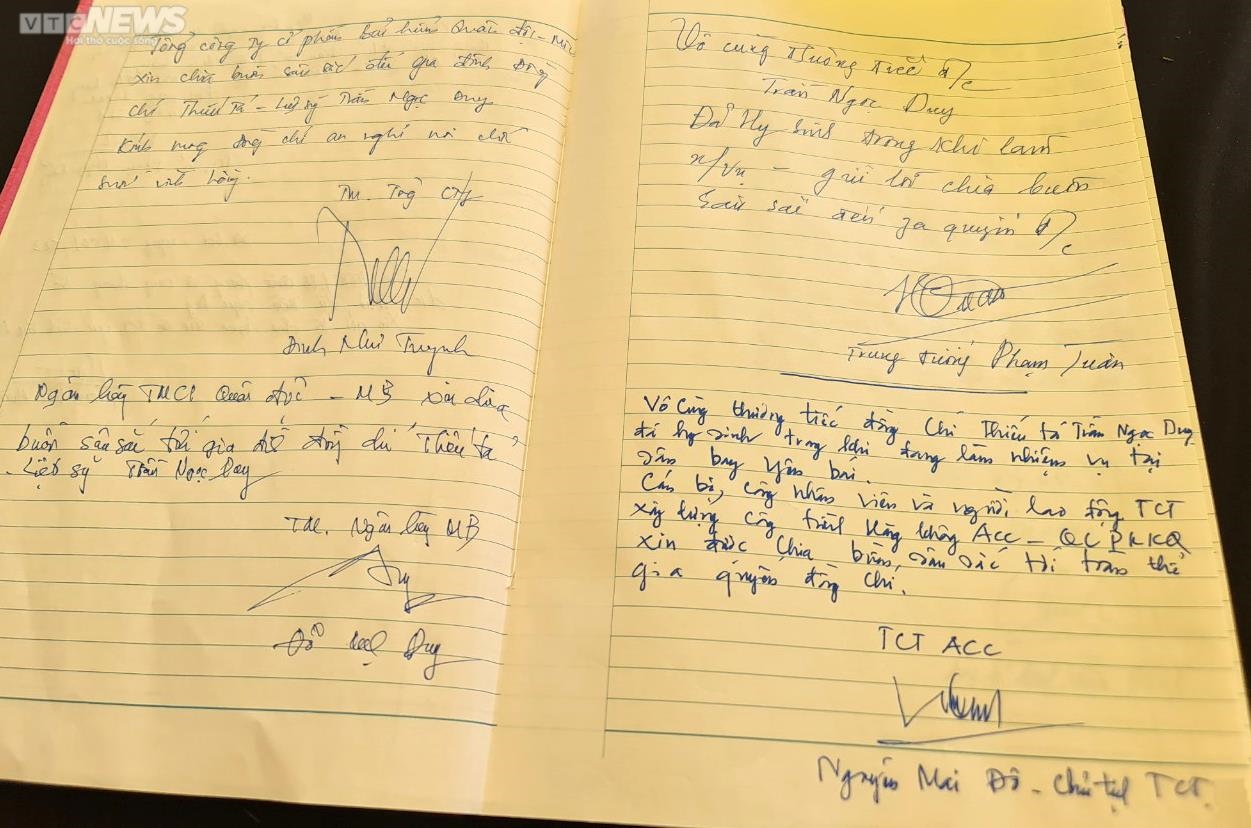 VTC NEWS
Hơi thở cuộc sống
Tổng công ty cổ phần Bảo hiểm Quân đội - MIC
xin chia buồn sâu sắc đến gia đình đồng
chí Thiếu tá - Liệt sỹ Trần Ngọc Duy
Kính mong đồng chí an nghỉ nơi chốn
vĩnh hằng.
TM. Tổng CTy
Đinh Như Tuynh
Ngân hàng TMCP Quân đội - MB xin chia
buồn sâu sắc tới gia đình đồng chí Thiếu tá
Liệt sỹ Trần Ngọc Duy
TM. Ngân hàng MB
Duy
Vô cùng thương tiếc đ/c
Trần Ngọc Duy
Đã Hy sinh trong khi làm
n/vụ - gửi lời chia buồn
Sâu sắc đến gia quyến đ/c
Trung tướng Phạm Tuân
Vô cùng thương tiếc đồng chí Thiếu tá Trần Ngọc Duy
đã hy sinh trong khi đang làm nhiệm vụ tại
sân bay Yên bái.
Cán bộ, công nhân viên và người lao động TCT
xây dựng công trình hàng không ACC - QCPKKQ
xin được chia buồn, sâu sắc tới toàn thể
gia quyến đồng chí.
TCT ACC
Nguyễn Mai Đô - Chủ tịch TCT.